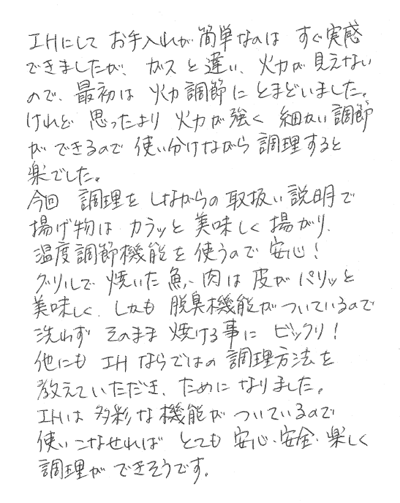 IHにして お手入れが簡単なのは すぐ実感
できましたが、ガスと違い、火力が見えない
ので、最初は 火力調節に とまどいました。
けれど 思ったより 火力が強く 細かい調節
ができるので 使い分けながら 調理すると
楽でした。
今回 調理を しながらの 取扱い説明で
揚げ物は カラッと 美味しく 揚がり、
温度調節機能を使うので 安心!
グリルで 焼いた 魚、肉は 皮が パリッと
美味しく、しかも 脱臭機能がついているので
洗わず そのまま 焼ける事に ビックリ!
他にも IHならではの 調理方法を
教えていただき、ために なりました。
IHは 多彩な機能が ついているので
使いこなせれば とても 安心・安全・楽しく
調理が できそうです。